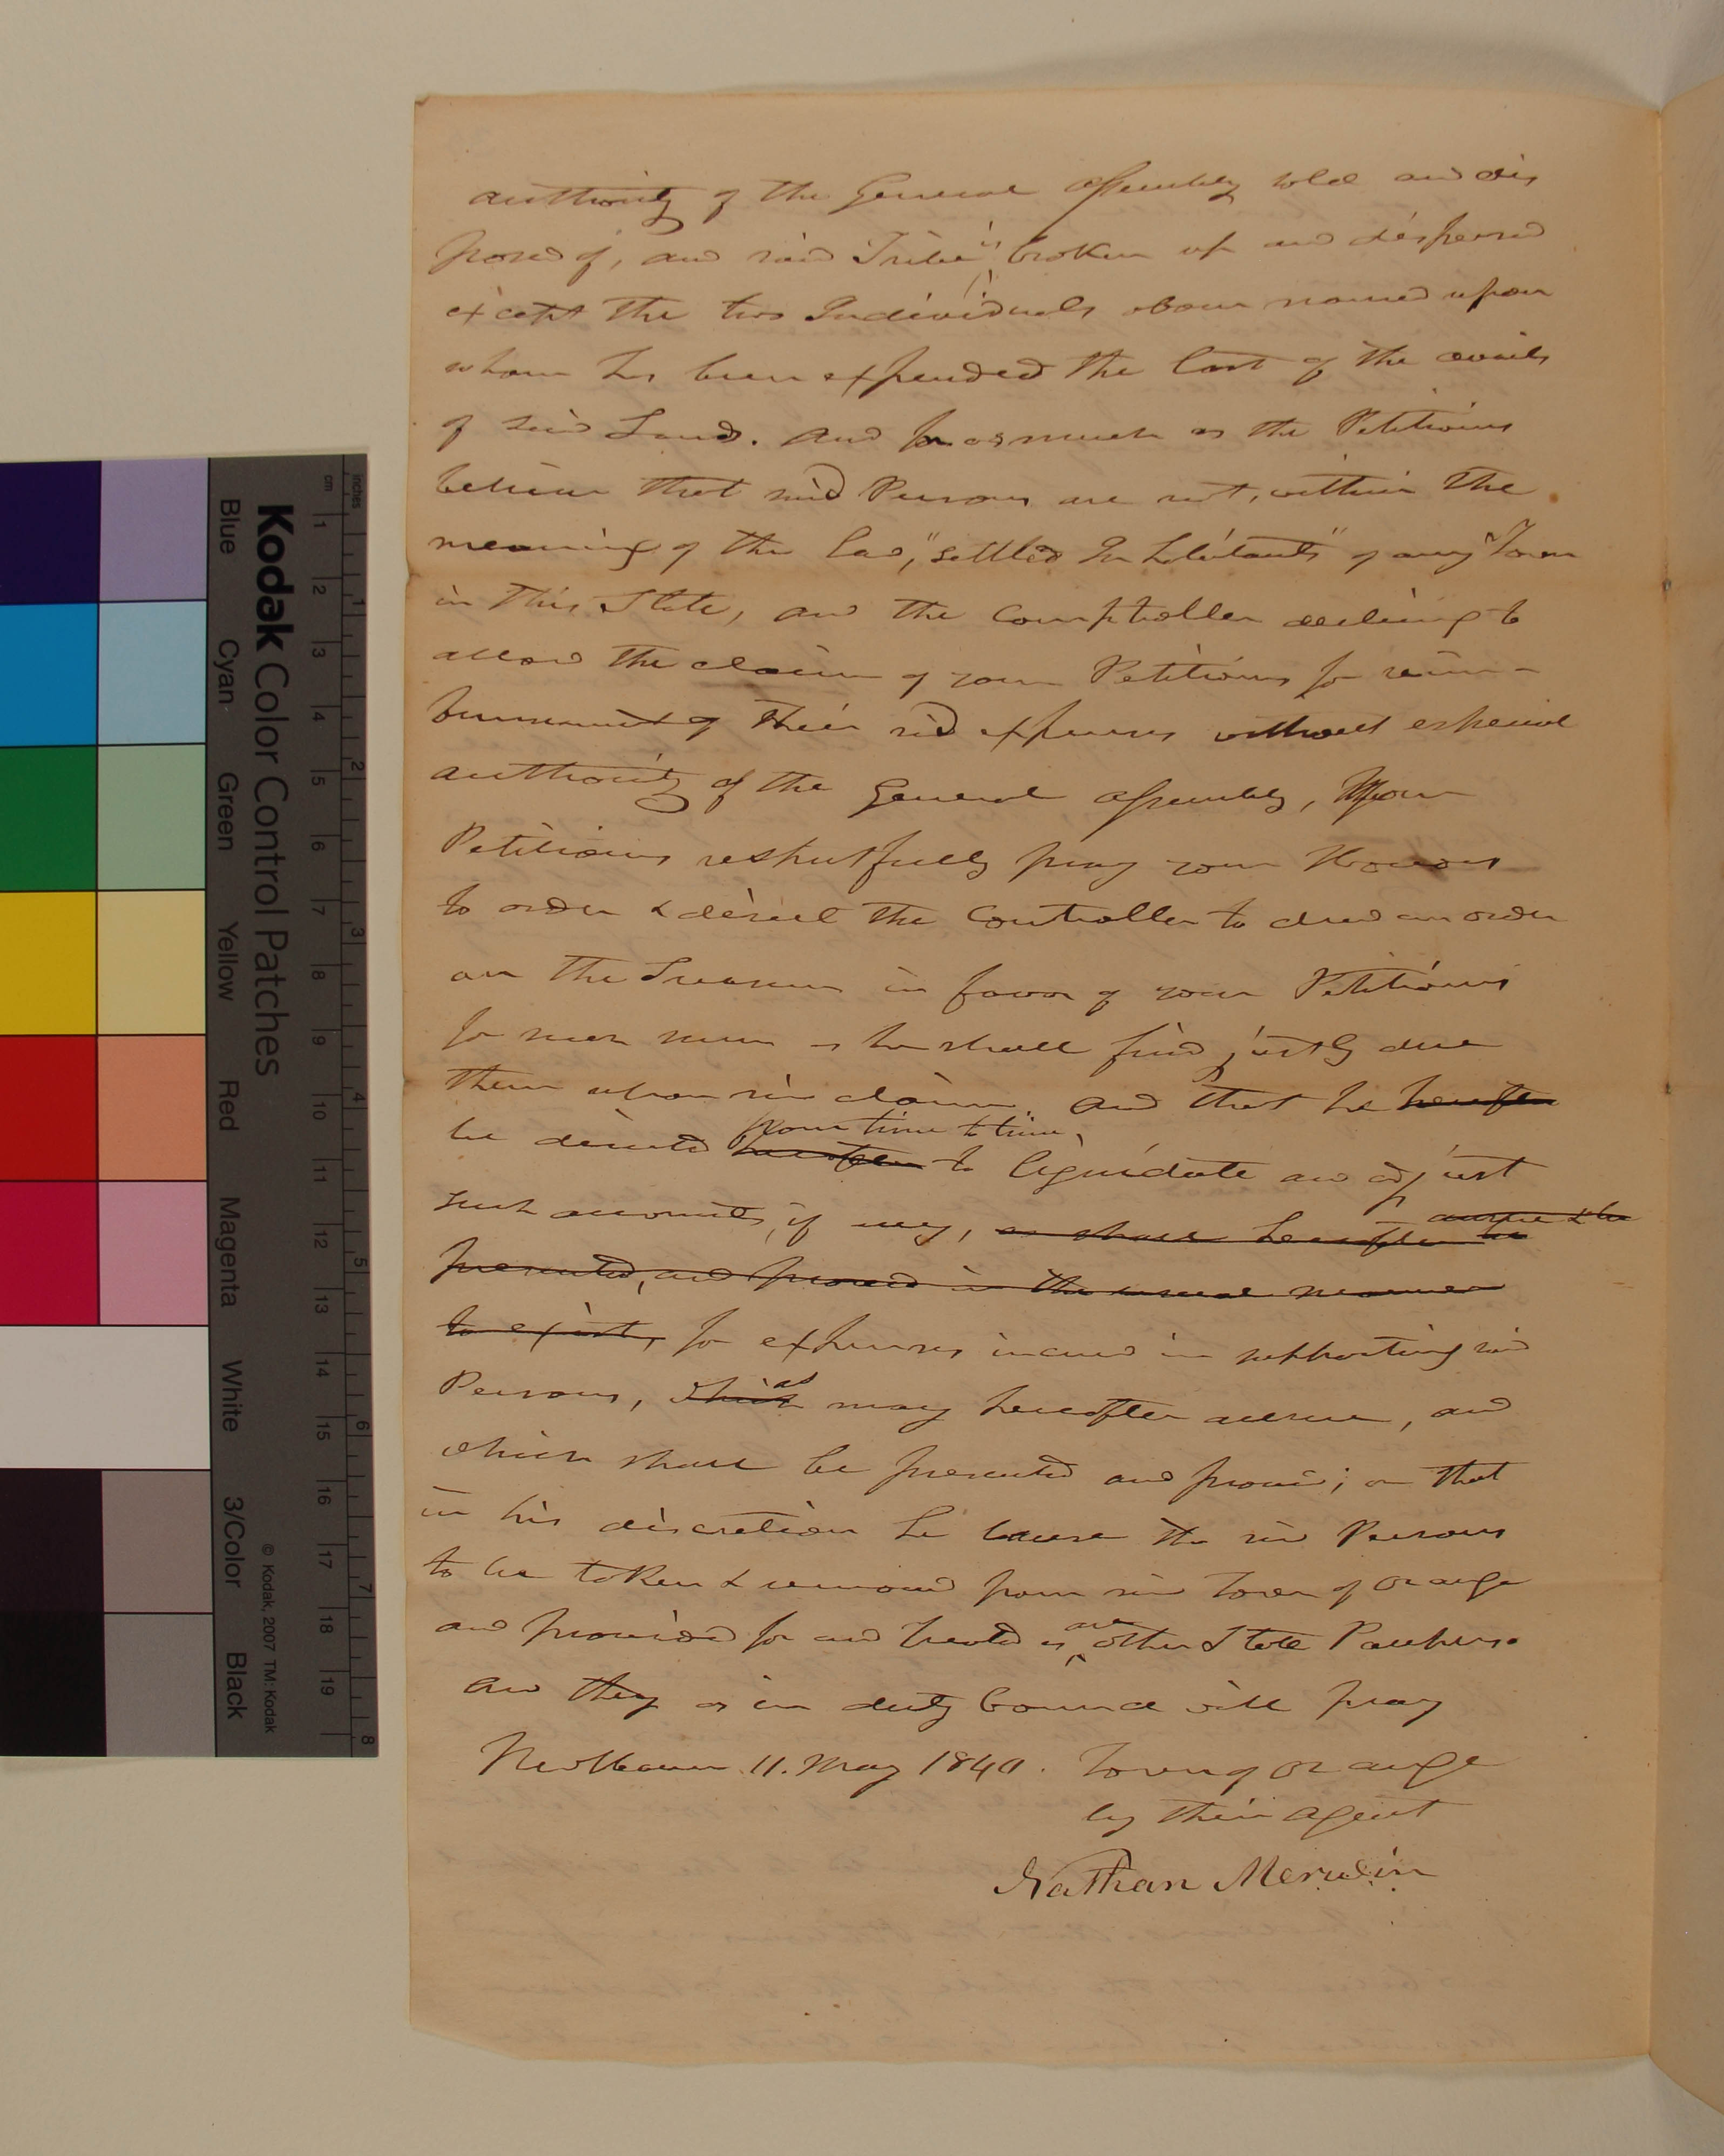 authority of the General Assembly sold and dis
posed of, and said Tribe is broken up and dispersed
except the two Individuals above named upon
whom has been expended the last of the avails
of said Land. And for as much as the Petitioners
believe that said Persons are not, within the
meaning of the law, "settled Inhabitants" of any Town
in this State, and the Comptroller declining to
allow the claim of your Petitioners for reim-
bursement of their sd expenses without especial
authority of the General Assembly, Your
Petitioners respectfully pray your Honors
to order & direct the Controller to draw an order
on the Treasurer in favor of your Petitioners
for such sum as he shall find justly due
them upon said claim. And that he hereafter
from time to time
be directed hereafter to liquidate and adjust
such accounts, if any, as shall hereafter be
presented, and proved in the usual manner
to exist, for expenses incurred in supporting said
as
Persons, which may hereafter accrue, and
which shall be presented and proved; or that
in his discretion he cause the said Persons
to be taken & removed from said Town of Orange
are
and provided for and treated as other State Paupers.
And they as in duty bound will pray
New Haven 11. May 1840. Town of Orange
by their Agent
Nathan Merwin
Kodak Color Control Patches
© Kodak, 2007 TM: Kodak
Blue Cyan Green Yellow Red Magenta White 3/Color Black
inches 1 2 3 4 5 6 7 8
cm 1 2 3 4 5 6 7 8 9 10 11 12 13 14 15 16 17 18 19